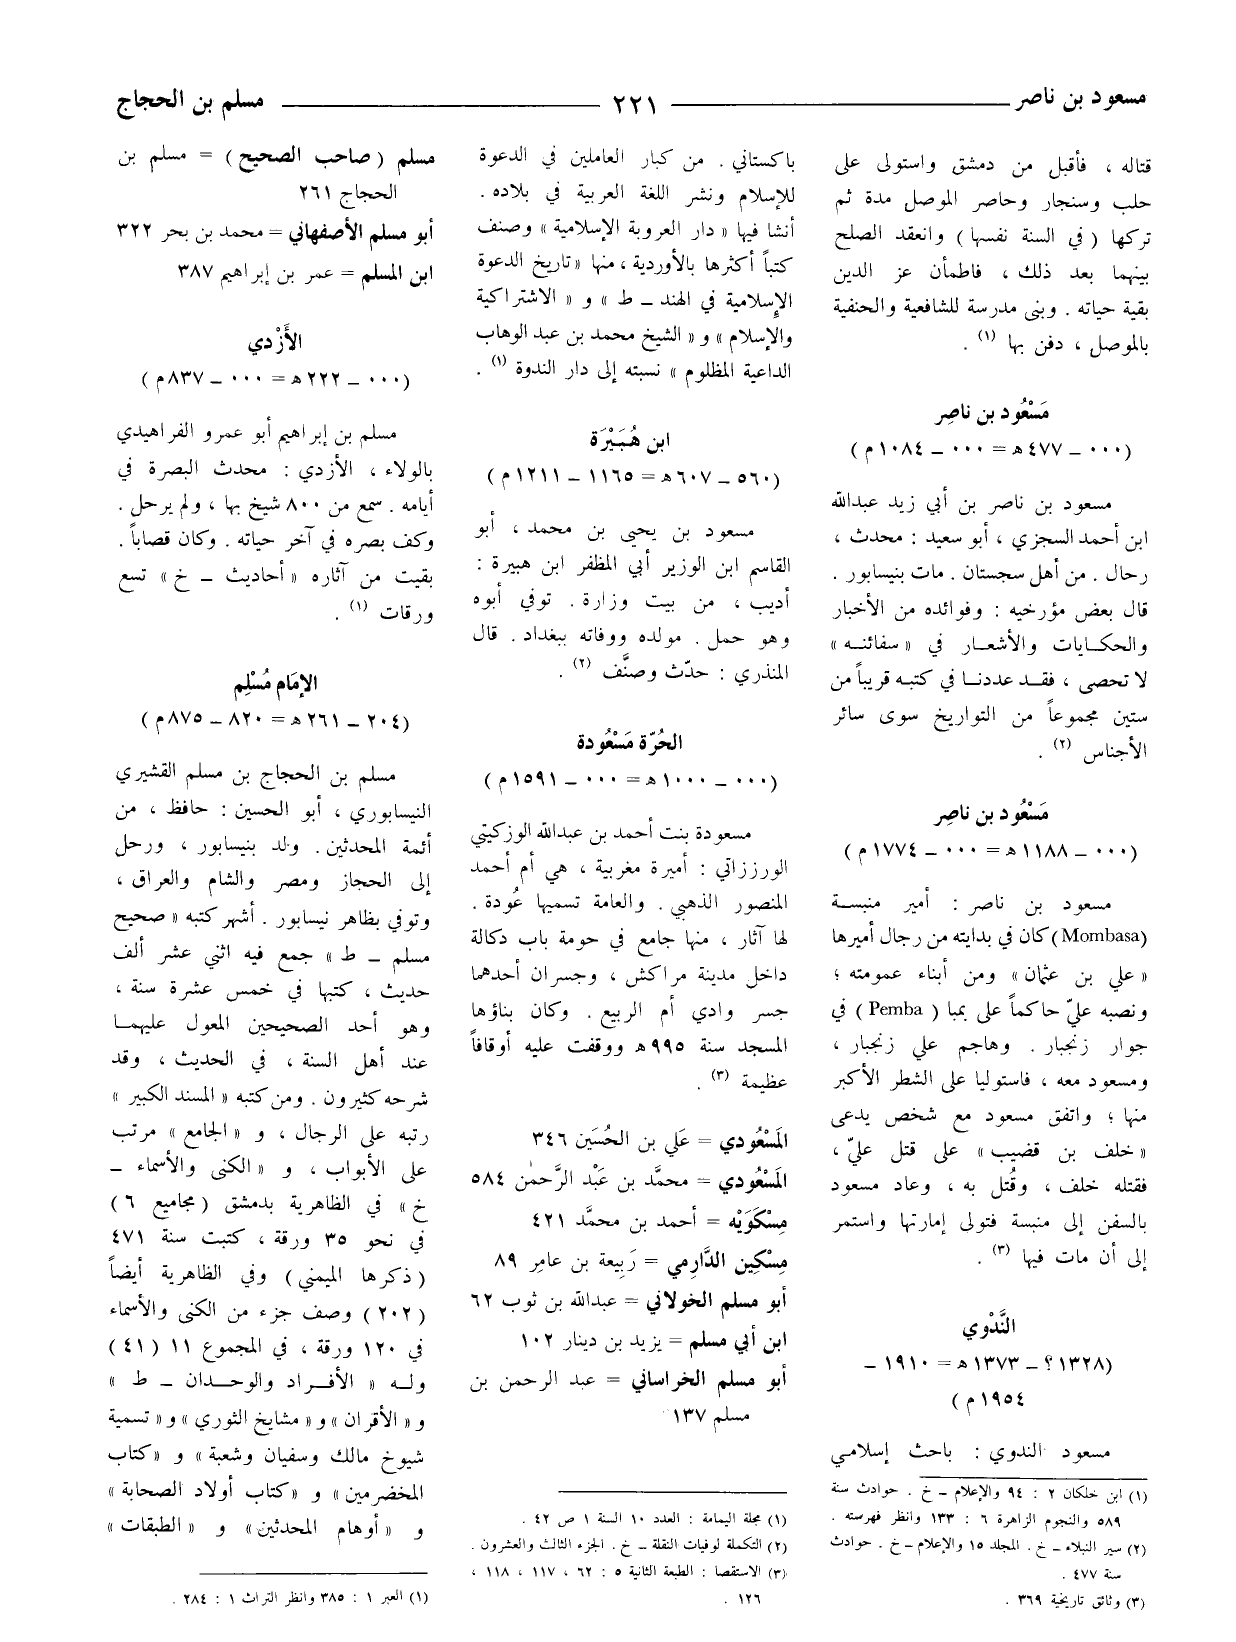 مسعود بن ناصر ــــ ٢٢١ ــــ مسلم بن الحجاج
قتاله ، فأقبل من دمشق واستولى على
حلب وسنجار وحاصر الموصل مدة ثم
تركها ( في السنة نفسها ) وانعقد الصلح
بينهما بعد ذلك ، فاطمأن عز الدين
بقية حياته . وبنى مدرسة للشافعية والحنفية
بالموصل ، دفن بها (١) .
مَسْعُود بن ناصِر
(٠٠٠ ــ ٤٧٧ هـ = ٠٠٠ ــ ١٠٨٤ م )
مسعود بن ناصر بن أبي زيد عبدالله
ابن أحمد السجزي ، أبو سعيد : محدث ،
رحال . من أهل سجستان . مات بنيسابور .
قال بعض مؤرخيه : وفوائده من الأخبار
والحكايات والأشعار في « سفائنه »
لا تحصى ، فقد عددنا في كتبه قريباً من
ستين مجموعاً من التواريخ سوى سائر
الأجناس (٢) .
مَسْعُود بن ناصِر
(٠٠٠ ــ ١١٨٨ هـ = ٠٠٠ ــ ١٧٧٤ م )
مسعود بن ناصر : أمير منبسة
(Mombasa) كان في بدايته من رجال أميرها
« علي بن عثمان » ومن أبناء عمومته ؛
ونصبه عليّ حاكماً على بمبا ( Pemba ) في
جوار زنجبار . وهاجم علي زنجبار ،
ومسعود معه ، فاستوليا على الشطر الأكبر
منها ؛ واتفق مسعود مع شخص يدعى
« خلف بن قضيب » على قتل عليّ ،
فقتله خلف ، وقُتل به ، وعاد مسعود
بالسفن إلى منبسة فتولى إمارتها واستمر
إلى أن مات فيها (٣) .
النَّدْوي
(١٣٢٨ ؟ ــ ١٣٧٣ هـ = ١٩١٠ ــ
١٩٥٤ م )
مسعود الندوي : باحث إسلامي
(١) ابن خلكان ٢ : ٩٤ والإعلام ــ خ . حوادث سنة
٥٨٩ والنجوم الزاهرة ٦ : ١٣٣ وانظر فهرسته .
(٢) سير النبلاء ــ خ . المجلد ١٥ والإعلام ــ خ . حوادث
سنة ٤٧٧ .
(٣) وثائق تاريخية ٣٦٩ .
باكستاني . من كبار العاملين في الدعوة
للإسلام ونشر اللغة العربية في بلاده .
أنشا فيها « دار العروبة الإسلامية » وصنف
كتباً أكثرها بالأوردية ، منها « تاريخ الدعوة
الإسلامية في الهند ــ ط » و « الاشتراكية
والإسلام » و « الشيخ محمد بن عبد الوهاب
الداعية المظلوم » نسبته إلى دار الندوة (١) .
ابن هُبَيْرَة
(٥٦٠ ــ ٦٠٧ هـ = ١١٦٥ ــ ١٢١١ م )
مسعود بن يحيى بن محمد ، أبو
القاسم ابن الوزير أبي المظفر ابن هبيرة :
أديب ، من بيت وزارة . توفي أبوه
وهو حمل . مولده ووفاته ببغداد . قال
المنذري : حدّث وصنَّف (٢) .
الحُرّة مَسْعُودة
(٠٠٠ ــ ١٠٠٠ هـ = ٠٠٠ ــ ١٥٩١ م )
مسعودة بنت أحمد بن عبدالله الوزكيتي
الورززاتي : أميرة مغربية ، هي أم أحمد
المنصور الذهبي . والعامة تسميها عُودة .
لها آثار ، منها جامع في حومة باب دكالة
داخل مدينة مراكش ، وجسران أحدهما
جسر وادي أم الربيع . وكان بناؤها
المسجد سنة ٩٩٥ هـ ووقفت عليه أوقافاً
عظيمة (٣) .
المَسْعُودي = عَلي بن الحُسَين ٣٤٦
المَسْعُودي = محمَّد بن عَبْد الرَّحمٰن ٥٨٤
مِسْكَوَيْه = أحمد بن محمَّد ٤٢١
مِسْكين الدَّارِمي = رَبِيعة بن عامِر ٨٩
أبو مسلم الخولاني = عبدالله بن ثوب ٦٢
ابن أبي مسلم = يزيد بن دينار ١٠٢
أبو مسلم الخراساني = عبد الرحمن بن
مسلم ١٣٧
(١) مجلة اليمامة : العدد ١٠ السنة ١ ص ٤٢ .
(٢) التكملة لوفيات النقلة ــ خ . الجزء الثالث والعشرون .
(٣) الاستقصا : الطبعة الثانية ٥ : ٦٢ ، ١١٧ ، ١١٨ ،
١٢٦ .
مسلم ( صاحب الصحيح ) = مسلم بن
الحجاج ٢٦١
أبو مسلم الأصفهاني = محمد بن بحر ٣٢٢
ابن المسلم = عمر بن إبراهيم ٣٨٧
الأَزْدي
(٠٠٠ ــ ٢٢٢ هـ = ٠٠٠ ــ ٨٣٧ م )
مسلم بن إبراهيم أبو عمرو الفراهيدي
بالولاء ، الأزدي : محدث البصرة في
أيامه . سمع من ٨٠٠ شيخ بها ، ولم يرحل .
وكف بصره في آخر حياته . وكان قصاباً .
بقيت من آثاره « أحاديث ــ خ » تسع
ورقات (١) .
الإمَام مُسْلِم
(٢٠٤ ــ ٢٦١ هـ = ٨٢٠ ــ ٨٧٥ م )
مسلم بن الحجاج بن مسلم القشيري
النيسابوري ، أبو الحسين : حافظ ، من
أئمة المحدثين . ولد بنيسابور ، ورحل
إلى الحجاز ومصر والشام والعراق ،
وتوفي بظاهر نيسابور . أشهر كتبه « صحيح
مسلم ــ ط » جمع فيه اثني عشر ألف
حديث ، كتبها في خمس عشرة سنة ،
وهو أحد الصحيحين المعول عليهما
عند أهل السنة ، في الحديث ، وقد
شرحه كثيرون . ومن كتبه « المسند الكبير »
رتبه على الرجال ، و « الجامع » مرتب
على الأبواب ، و « الكنى والأسماء ــ
خ » في الظاهرية بدمشق ( مجاميع ٦ )
في نحو ٣٥ ورقة ، كتبت سنة ٤٧١
( ذكرها الميمني ) وفي الظاهرية أيضاً
( ٢٠٢ ) وصف جزء من الكنى والأسماء
في ١٢٠ ورقة ، في المجموع ١١ ( ٤١ )
وله « الأفراد والوحدان ــ ط »
و « الأقران » و « مشايخ الثوري » و « تسمية
شيوخ مالك وسفيان وشعبة » و « كتاب
المخضرمين » و « كتاب أولاد الصحابة »
و « أوهام المحدثين » و « الطبقات »
(١) العبر ١ : ٣٨٥ وانظر التراث ١ : ٢٨٤ .